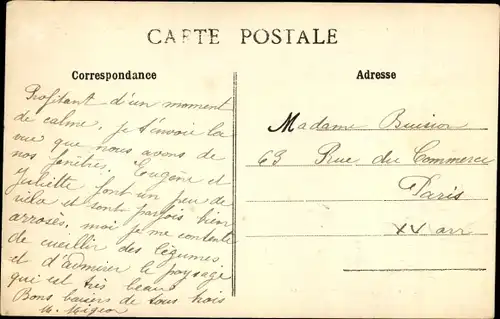 CARTE POSTALE
Correspondance
Profitant d'un moment
de calme, je t'envoie la
vue que nous avons de
nos fenêtres. Eugène et
Juliette font un peu de
et sont parfois bien
arrosés, mais je me contente
de cueillir des légumes
et d'admirer le paysage
qui est très beau
Bons baisers de tous trois
Adresse
Madame Buision
63 Rue du Commerce
Paris
XV arr